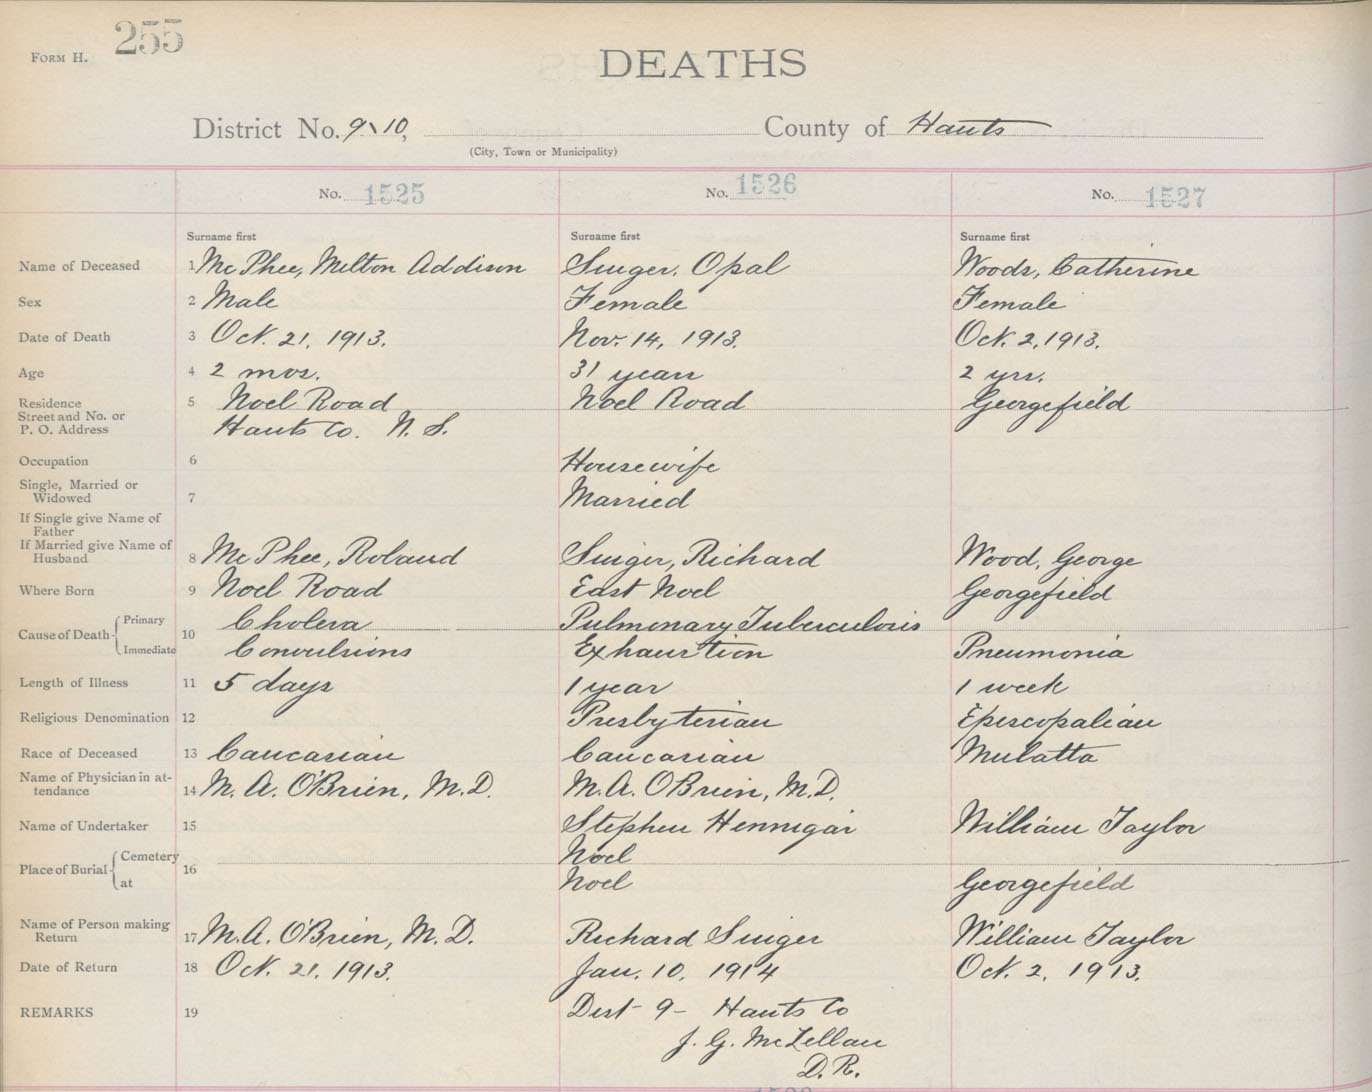 FORM H. 255
DEATHS
District No. 9 \ 10, County of Hants
(City, Town or Municipality)
No. 1525 No. 1526 No. 1527
Surname first Surname first Surname first
Name of Deceased 1 McPhee, Milton Addison Singer, Opal Woods, Catherine
Sex 2 Male Female Female
Date of Death 3 Oct. 21, 1913. Nov. 14, 1913. Oct. 2, 1913.
Age 4 2 mos. 31 years 2 yrs.
Residence 5 Noel Road Noel Road Georgefield
Street and No. or
P. O. Address Hants Co. N. S.
Occupation 6 Housewife
Single, Married or
Widowed 7 Married
If Single give Name of
Father
If Married give Name of
Husband 8 McPhee, Roland Singer, Richard Wood, George
Where Born 9 Noel Road East Noel Georgefield
Cause of Death Primary 10 Cholera Pulmonary Tuberculosis
Immediate Convulsions Exhaustion Pneumonia
Length of Illness 11 5 days 1 year 1 week
Religious Denomination 12 Presbyterian Episcopalian
Race of Deceased 13 Caucasian Caucasian Mulatta
Name of Physician in at-
tendance 14 M. A. O'Brien, M.D. M. A. O'Brien, M.D.
Name of Undertaker 15 Stephen Hennigar William Taylor
Place of Burial Cemetery 16 Noel
at Noel Georgefield
Name of Person making
Return 17 M. A. O'Brien, M. D. Richard Singer William Taylor
Date of Return 18 Oct. 21, 1913. Jan. 10, 1914 Oct. 2, 1913.
REMARKS 19 Dist - 9 - Hants Co
J. G. McLellan
D. R.